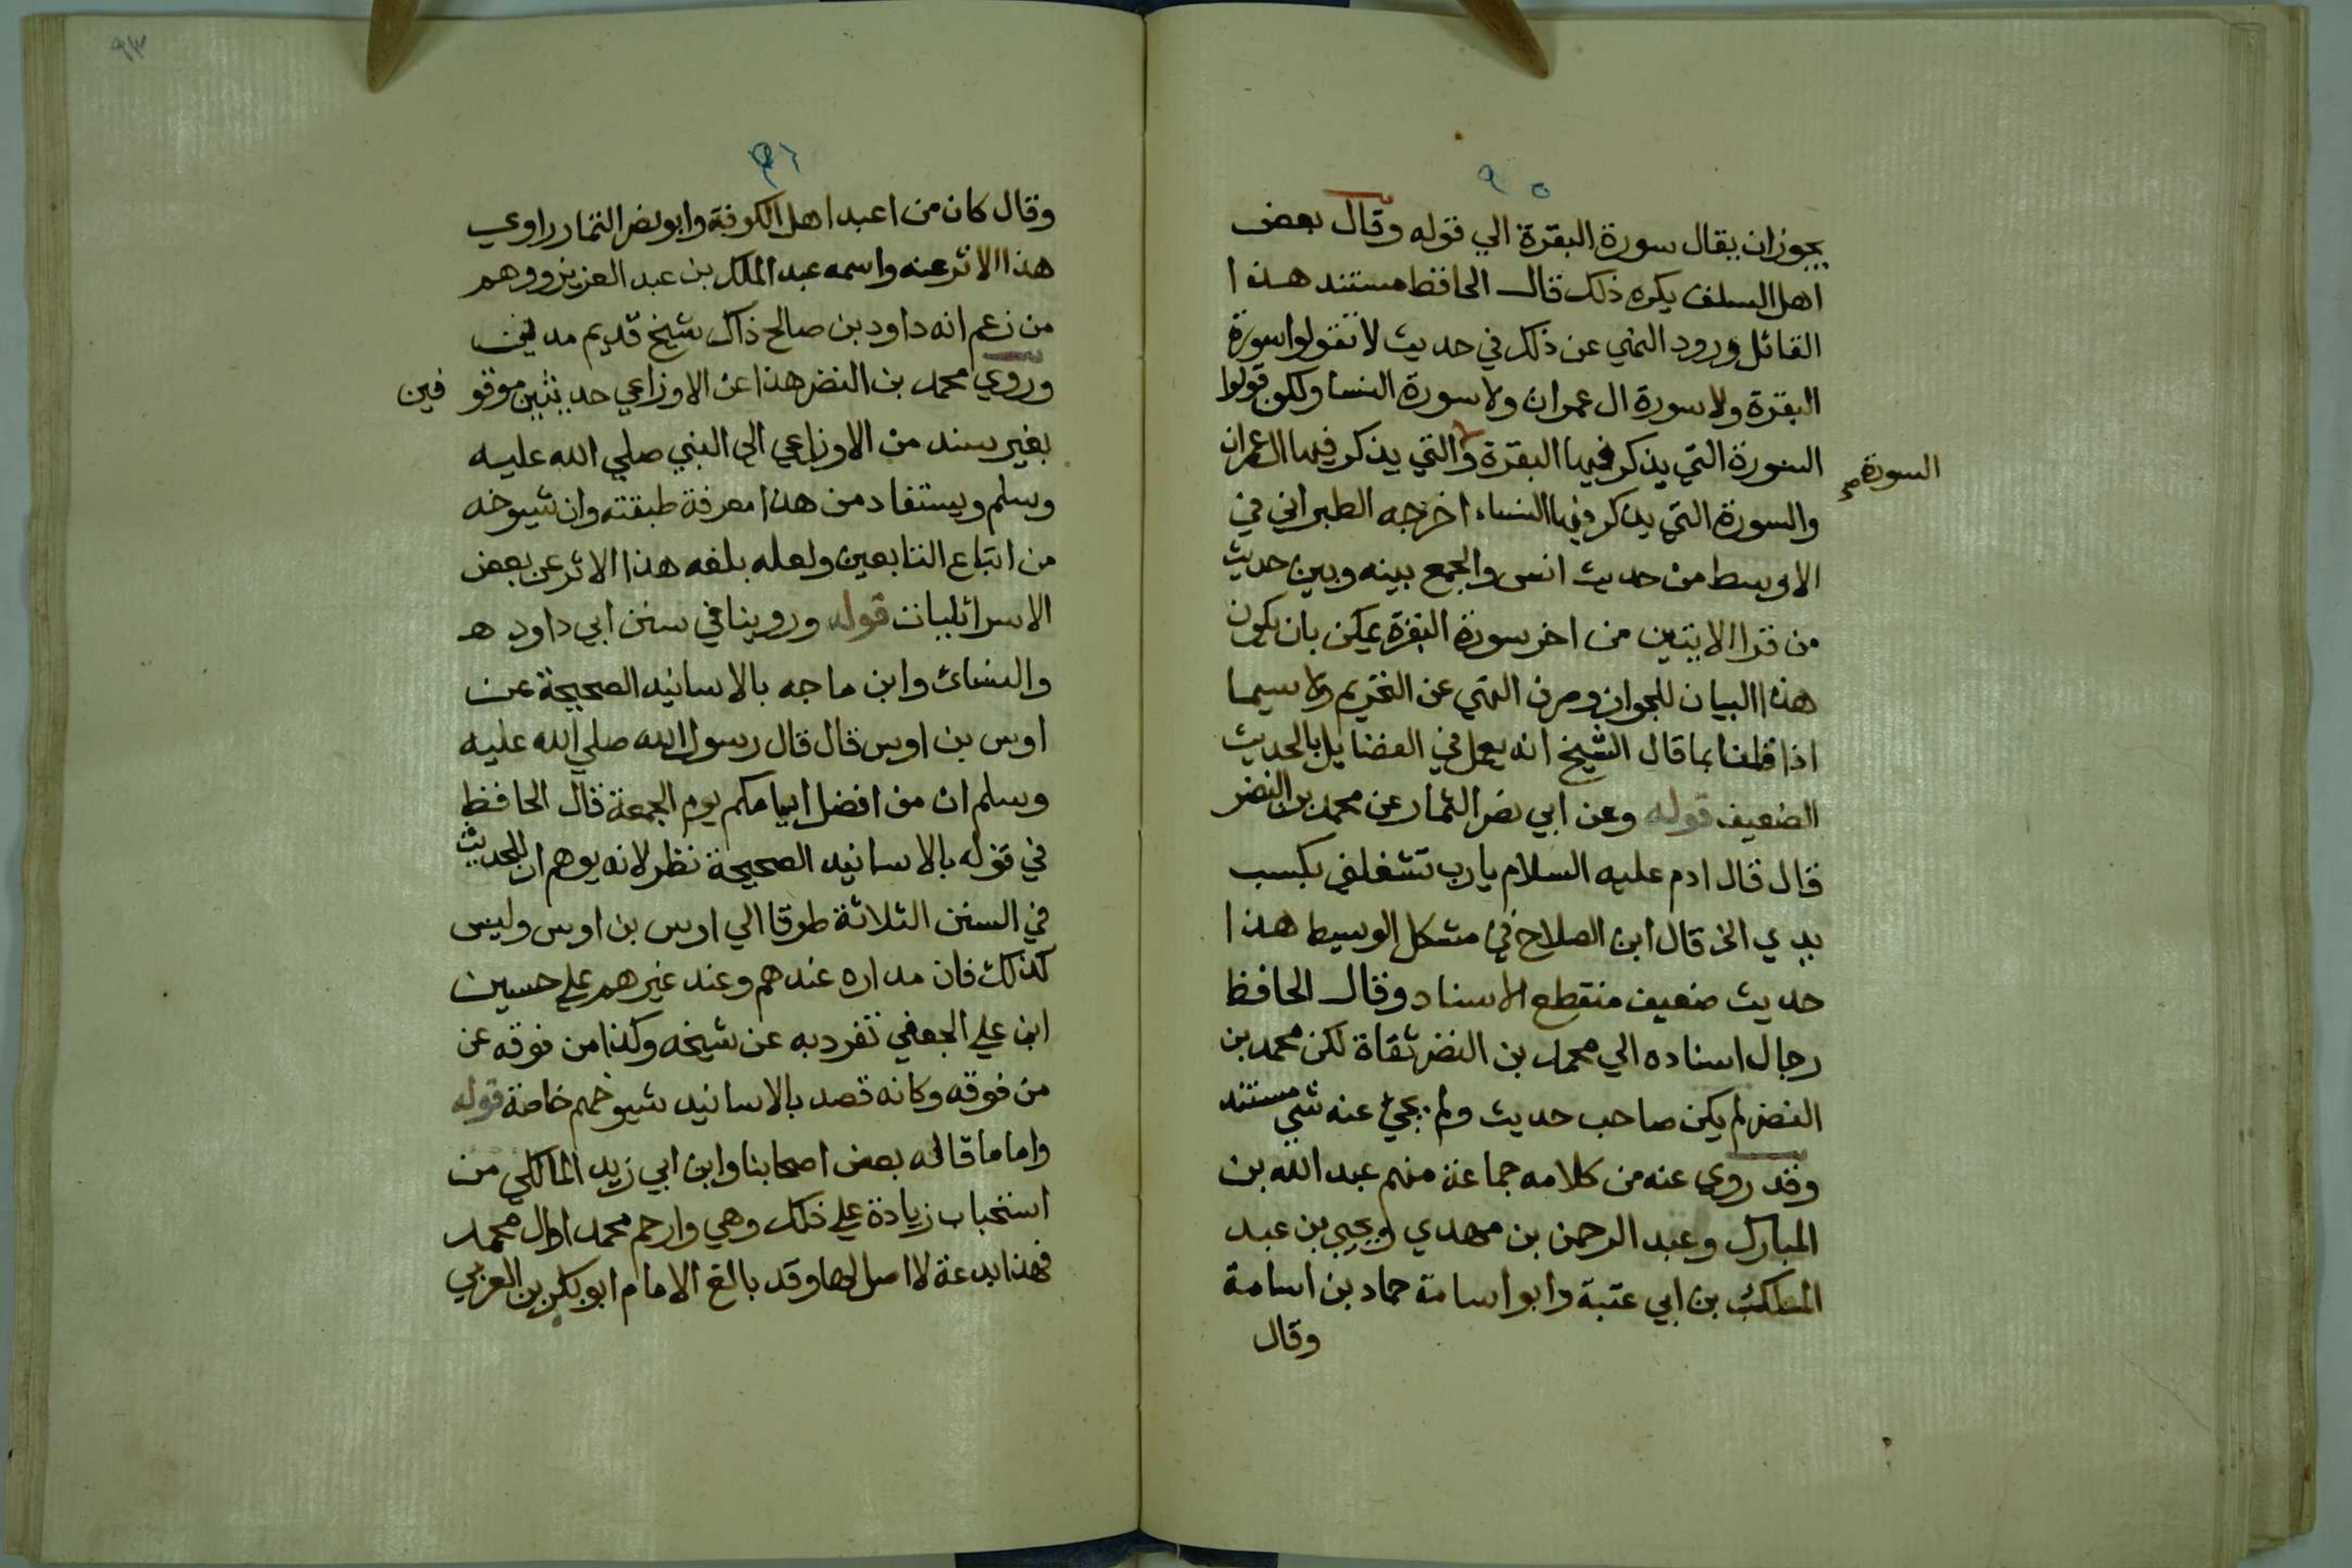 ٩٥
يجوز ان يقال سورة البقرة الي قوله وقال بعض
اهل السلف يكره ذلك قال الحافظ مستند هذا
القائل ورود النهي عن ذلك في حديث لا تقولوا سورة
البقرة ولا سورة ال عمران ولا سورة النسا ولكن قولوا
السورة التي يذكر فيها البقرة والتي يذكر فيها ال عمران
السورة صح
والسورة التي يذكر فيها النساء اخرجه الطبراني في
الاوسط من حديث انس والجمع بينه وبين حديث
من قرا الايتين من اخر سورة البقرة يمكن بان يكون
هذا البيان للجواز وصرف النهي عن التحريم ولا سيما
اذا قلنا بما قال الشيخ انه يعمل في الفضايل بالحديث
الضعيف قوله وعن ابي نصر التمار عن محمد بن النضر
قال قال ادم عليه السلام يا رب تشغلني بكسب
يدي الخ قال ابن الصلاح في مشكل الوسيط هذا
حديث ضعيف منقطع الاسناد وقال الحافظ
رجال اسناده الي محمد بن النضر ثقاة لكن محمد بن
النضر لم يكن صاحب حديث ولم يجئ عنه شي مستند
وقد روي عنه من كلامه جماعة منهم عبد الله بن
المبارك وعبد الرحمن بن مهدي ويحيي بن عبد
الملك بن ابي عتبة وابو اسامة حماد بن اسامة
وقال
٩٣
٩٦
وقال كان من اعبد اهل الكوفة وابو نصر التمار راوي
هذا الاثر عنه واسمه عبد الملك بن عبد العزيز ووهم
من زعم انه داود بن صالح ذاك شيخ قديم مديني
وروي محمد بن النضر هذا عن الاوزاعي حديثين موقوفين
بغير سند من الاوزاعي الي النبي صلي الله عليه
وسلم ويستفاد من هذا معرفة طبقته وان شيوخه
من اتباع التابعين ولعله بلغه هذا الاثر عن بعض
الاسرائليات قوله وروينا في سنن ابي داود هـ
والنسائ وابن ماجه بالاسانيد الصحيحة عن
اوس بن اوس قال قال رسول الله صلي الله عليه
وسلم ان من افضل ايامكم يوم الجمعة قال الحافظ
في قوله بالاسانيد الصحيحة نظر لانه يوهم ان للحديث
في السنن الثلاثة طرقا الي اوس بن اوس وليس
كذلك فان مداره عندهم وعند غيرهم علي حسين
ابن علي الجعفي تفرد به عن شيخه وكذا من فوقه عن
من فوقه وكانه قصد بالاسانيد شيوخهم خاصة قوله
واما ما قاله بعض اصحابنا وابن ابي زيد المالكي من
استحباب زيادة علي ذلك وهي وارحم محمدا وال محمد
فهذا بدعة لا اصل لها وقد بالغ الامام ابو بكر بن العربي